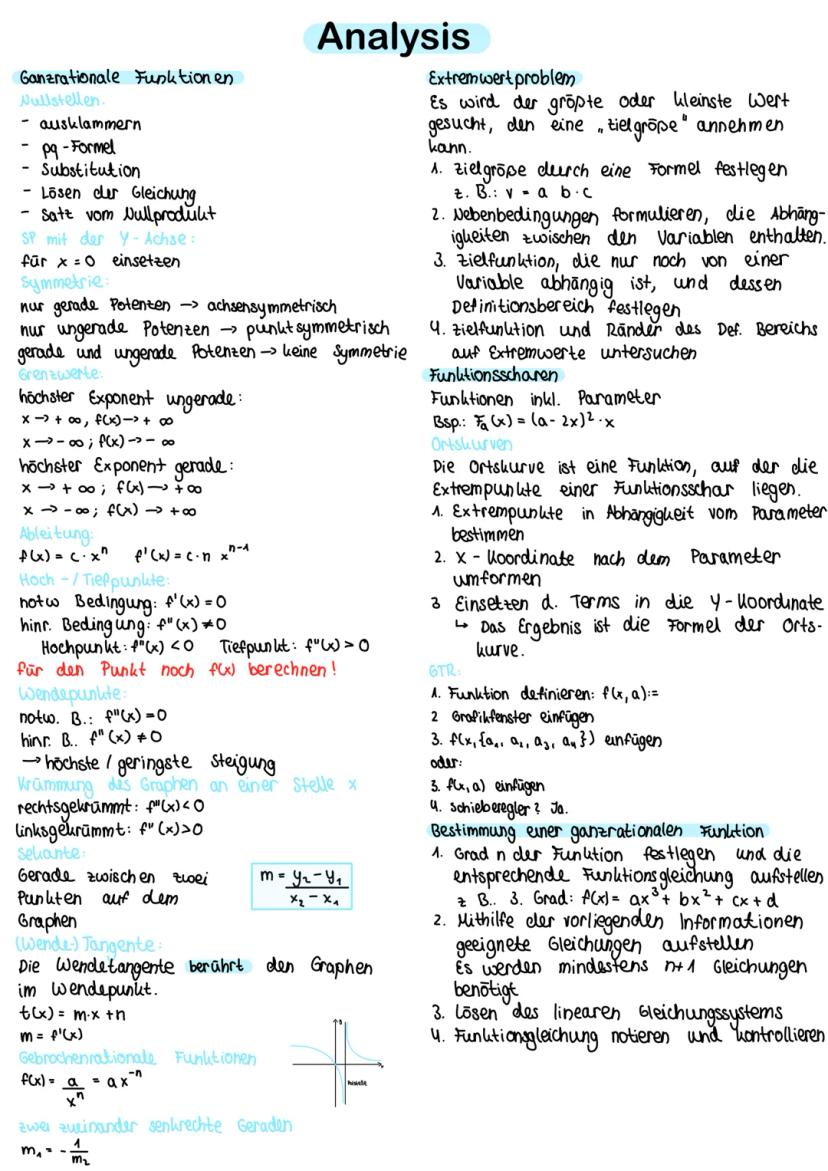 Analysis
Ganzrationale Funktionen
Nullstellen:
- ausklammern
- pq-Formel
- Substitution
- Lösen der Gleichung
- Satz vom Nullprodukt
SP mit der Y-Achse:
für x = 0 einsetzen
Symmetrie:
nur gerade Potenzen → achsensymmetrisch
nur ungerade Potenzen → punktsymmetrisch
gerade und ungerade Potenzen → keine Symmetrie
Grenzwerte:
höchster Exponent ungerade:
x → + ∞, f(x) → + ∞
x → - ∞; f(x) → - ∞
höchster Exponent gerade:
x → + ∞; f(x) → + ∞
x → - ∞; f(x) → + ∞
Ableitung:
f(x) = c · xⁿ f'(x) = c · n xⁿ⁻¹
Hoch - / Tiefpunkte:
notw Bedingung: f'(x) = 0
hinr. Bedingung: f"(x) ≠ 0
Hochpunkt: f"(x) < 0 Tiefpunkt: f"(x) > 0
für den Punkt noch f(x) berechnen!
Wendepunkte:
notw. B.: f"(x) = 0
hinr. B.. f"'(x) ≠ 0
→ höchste / geringste Steigung
Krümmung des Graphen an einer Stelle x
rechtsgekrümmt: f"(x) < 0
linksgekrümmt: f"(x) > 0
Sekante:
Gerade zwischen zwei
Punkten auf dem
Graphen
m = y₂ - y₁ / x₂ - x₁
(Wende-) Tangente:
Die Wendetangente berührt den Graphen
im Wendepunkt.
t(x) = m·x + n
m = f'(x)
Gebrochenrationale Funktionen
f(x) = a / xⁿ = a x⁻ⁿ
zwei zueinander senkrechte Geraden
m₁ = - 1 / m₂
Extremwertproblem
Es wird der größte oder kleinste Wert
gesucht, den eine „Zielgröße" annehmen
kann.
1. Zielgröße durch eine Formel festlegen
z. B.: v = a b · c
2. Nebenbedingungen formulieren, die Abhäng-
igkeiten zwischen den Variablen enthalten.
3. Zielfunktion, die nur noch von einer
Variable abhängig ist, und dessen
Definitionsbereich festlegen
4. Zielfunktion und Ränder des Def. Bereichs
auf Extremwerte untersuchen
Funktionsscharen
Funktionen inkl. Parameter
Bsp.: Fₐ(x) = (a - 2x)² · x
Ortskurven
Die Ortskurve ist eine Funktion, auf der die
Extrempunkte einer Funktionsschar liegen.
1. Extrempunkte in Abhängigkeit vom Parameter
bestimmen
2. X - Koordinate nach dem Parameter
umformen
3 Einsetzen d. Terms in die Y-Koordinate
↳ Das Ergebnis ist die Formel der Orts-
kurve.
GTR:
1. Funktion definieren: f(x, a):=
2 Grafikfenster einfügen
3. f(x, {a₁, a₂, a₃, a₄}) einfügen
oder:
3. f(x, a) einfügen
4. Schieberegler? Ja.
Bestimmung einer ganzrationalen Funktion
1. Grad n der Funktion festlegen und die
entsprechende Funktionsgleichung aufstellen
z B.. 3. Grad: f(x) = ax³ + bx² + cx + d
2. Mithilfe der vorliegenden Informationen
geeignete Gleichungen aufstellen
Es werden mindestens n+1 Gleichungen
benötigt
3. Lösen des linearen Gleichungssystems
4. Funktionsgleichung notieren und kontrollieren